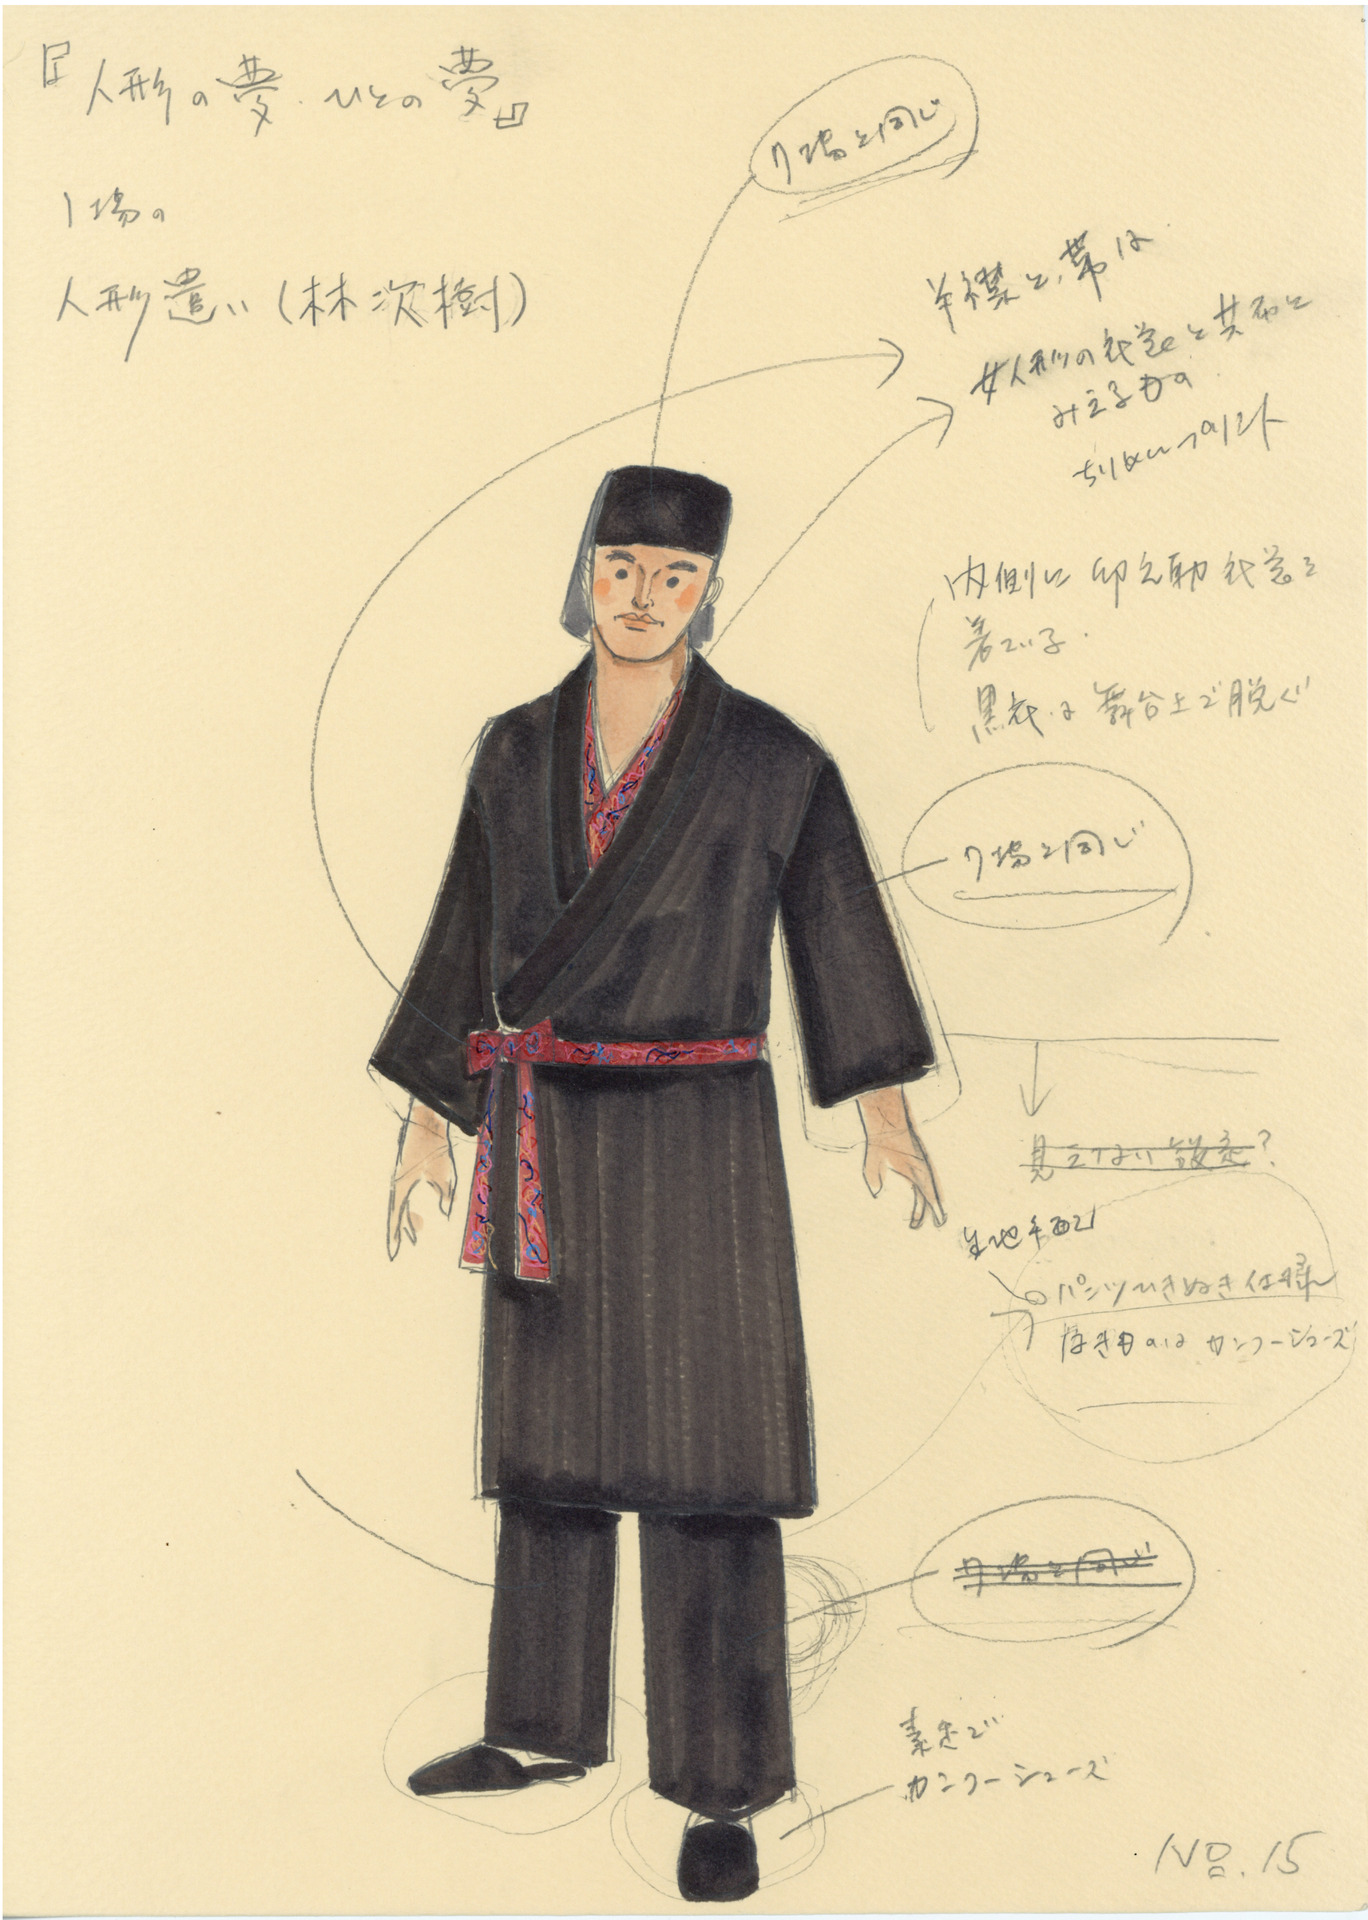 『人形の夢 ひとの夢』
1場の
人形遣い(林次樹)
7場と同じ
半襟と、帯は
女人形の衣裳と共布と
みえるもの
ちりめんプリント
内側に 卯之助 衣裳を
着ている.
黒衣は舞台上で脱ぐ
7場と同じ
見えない設定?
生地手配
パンツひきぬき仕様
はきものは カンフーシューズ
7場と同じ
素足で
カンフーシューズ
NO.15